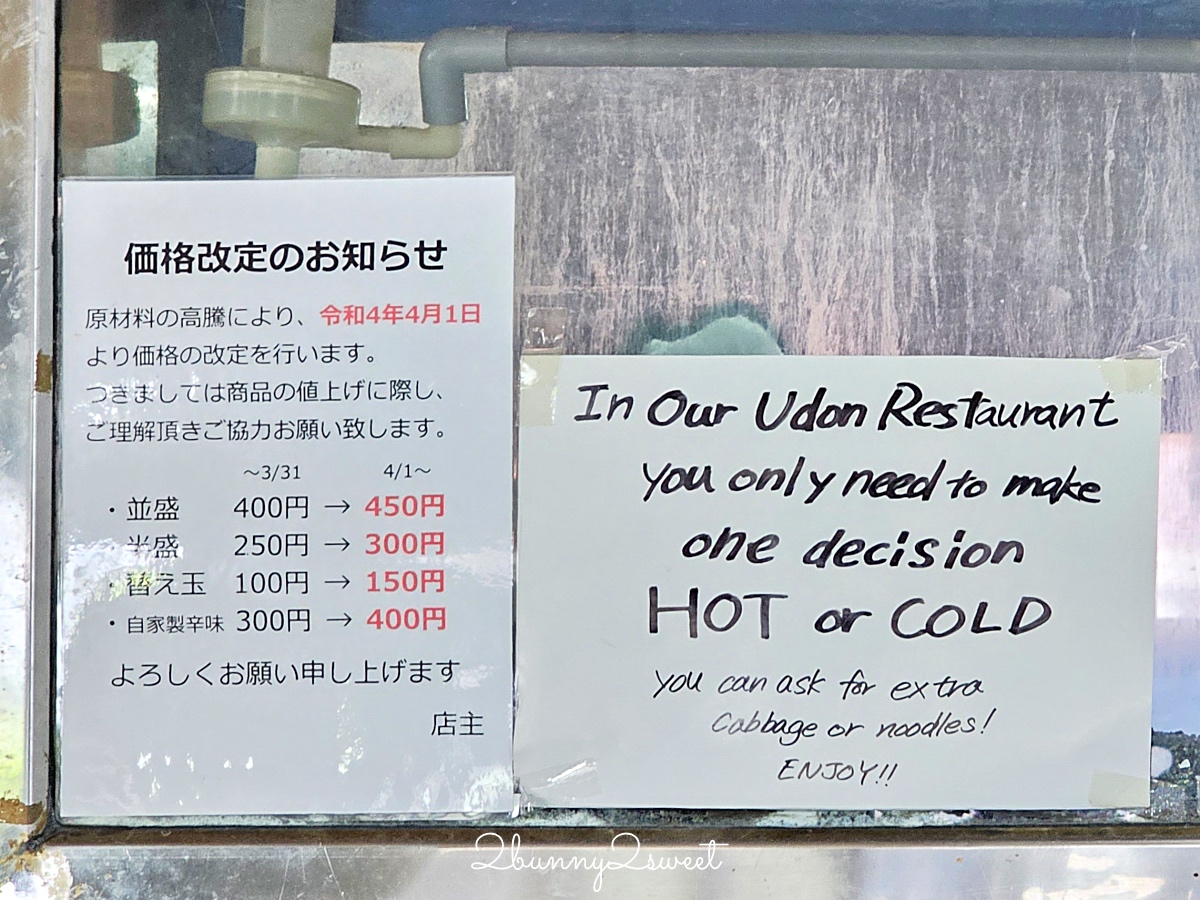 価格改定のお知らせ
原材料の高騰により、令和4年4月1日
より価格の改定を行います。
つきましては商品の値上げに際し、
ご理解頂きご協力お願い致します。
～3/31 4/1～
・並盛 400円 → 450円
・半盛 250円 → 300円
・替え玉 100円 → 150円
・自家製辛味 300円 → 400円
よろしくお願い申し上げます
店主
In Our Udon Restaurant
you only need to make
one decision
HOT or COLD
you can ask for extra
cabbage or noodles!
ENJOY!!
2bunny2sweet